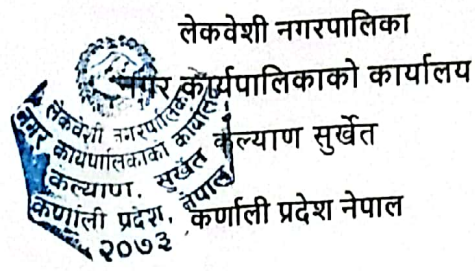 लेकवेशी नगरपालिका
नगर कार्यपालिकाको कार्यालय
कल्याण सुर्खेत
कर्णाली प्रदेश नेपाल
लेकवेशी नगरपालिका
नगर कार्यपालिकाको कार्यालय
कल्याण, सुर्खेत
कर्णाली प्रदेश, नेपाल
२०७३